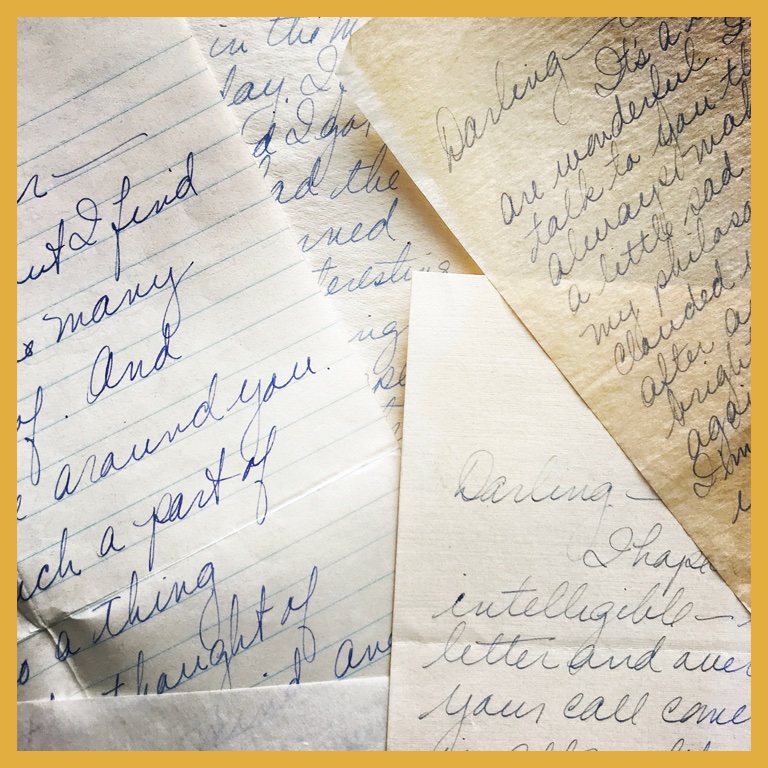 ut I find
many
of. And
around you.
uch a part of
a thing
thought of
and
in the m
day I
I go
ad the
rned
teresting
ing
Darling — It's a
are wonderful. I
talk to you th
always mak
a little sad
my philoso
clouded
after a
brigh
again
Darling —
I hope
intelligible —
letter and over
your call come